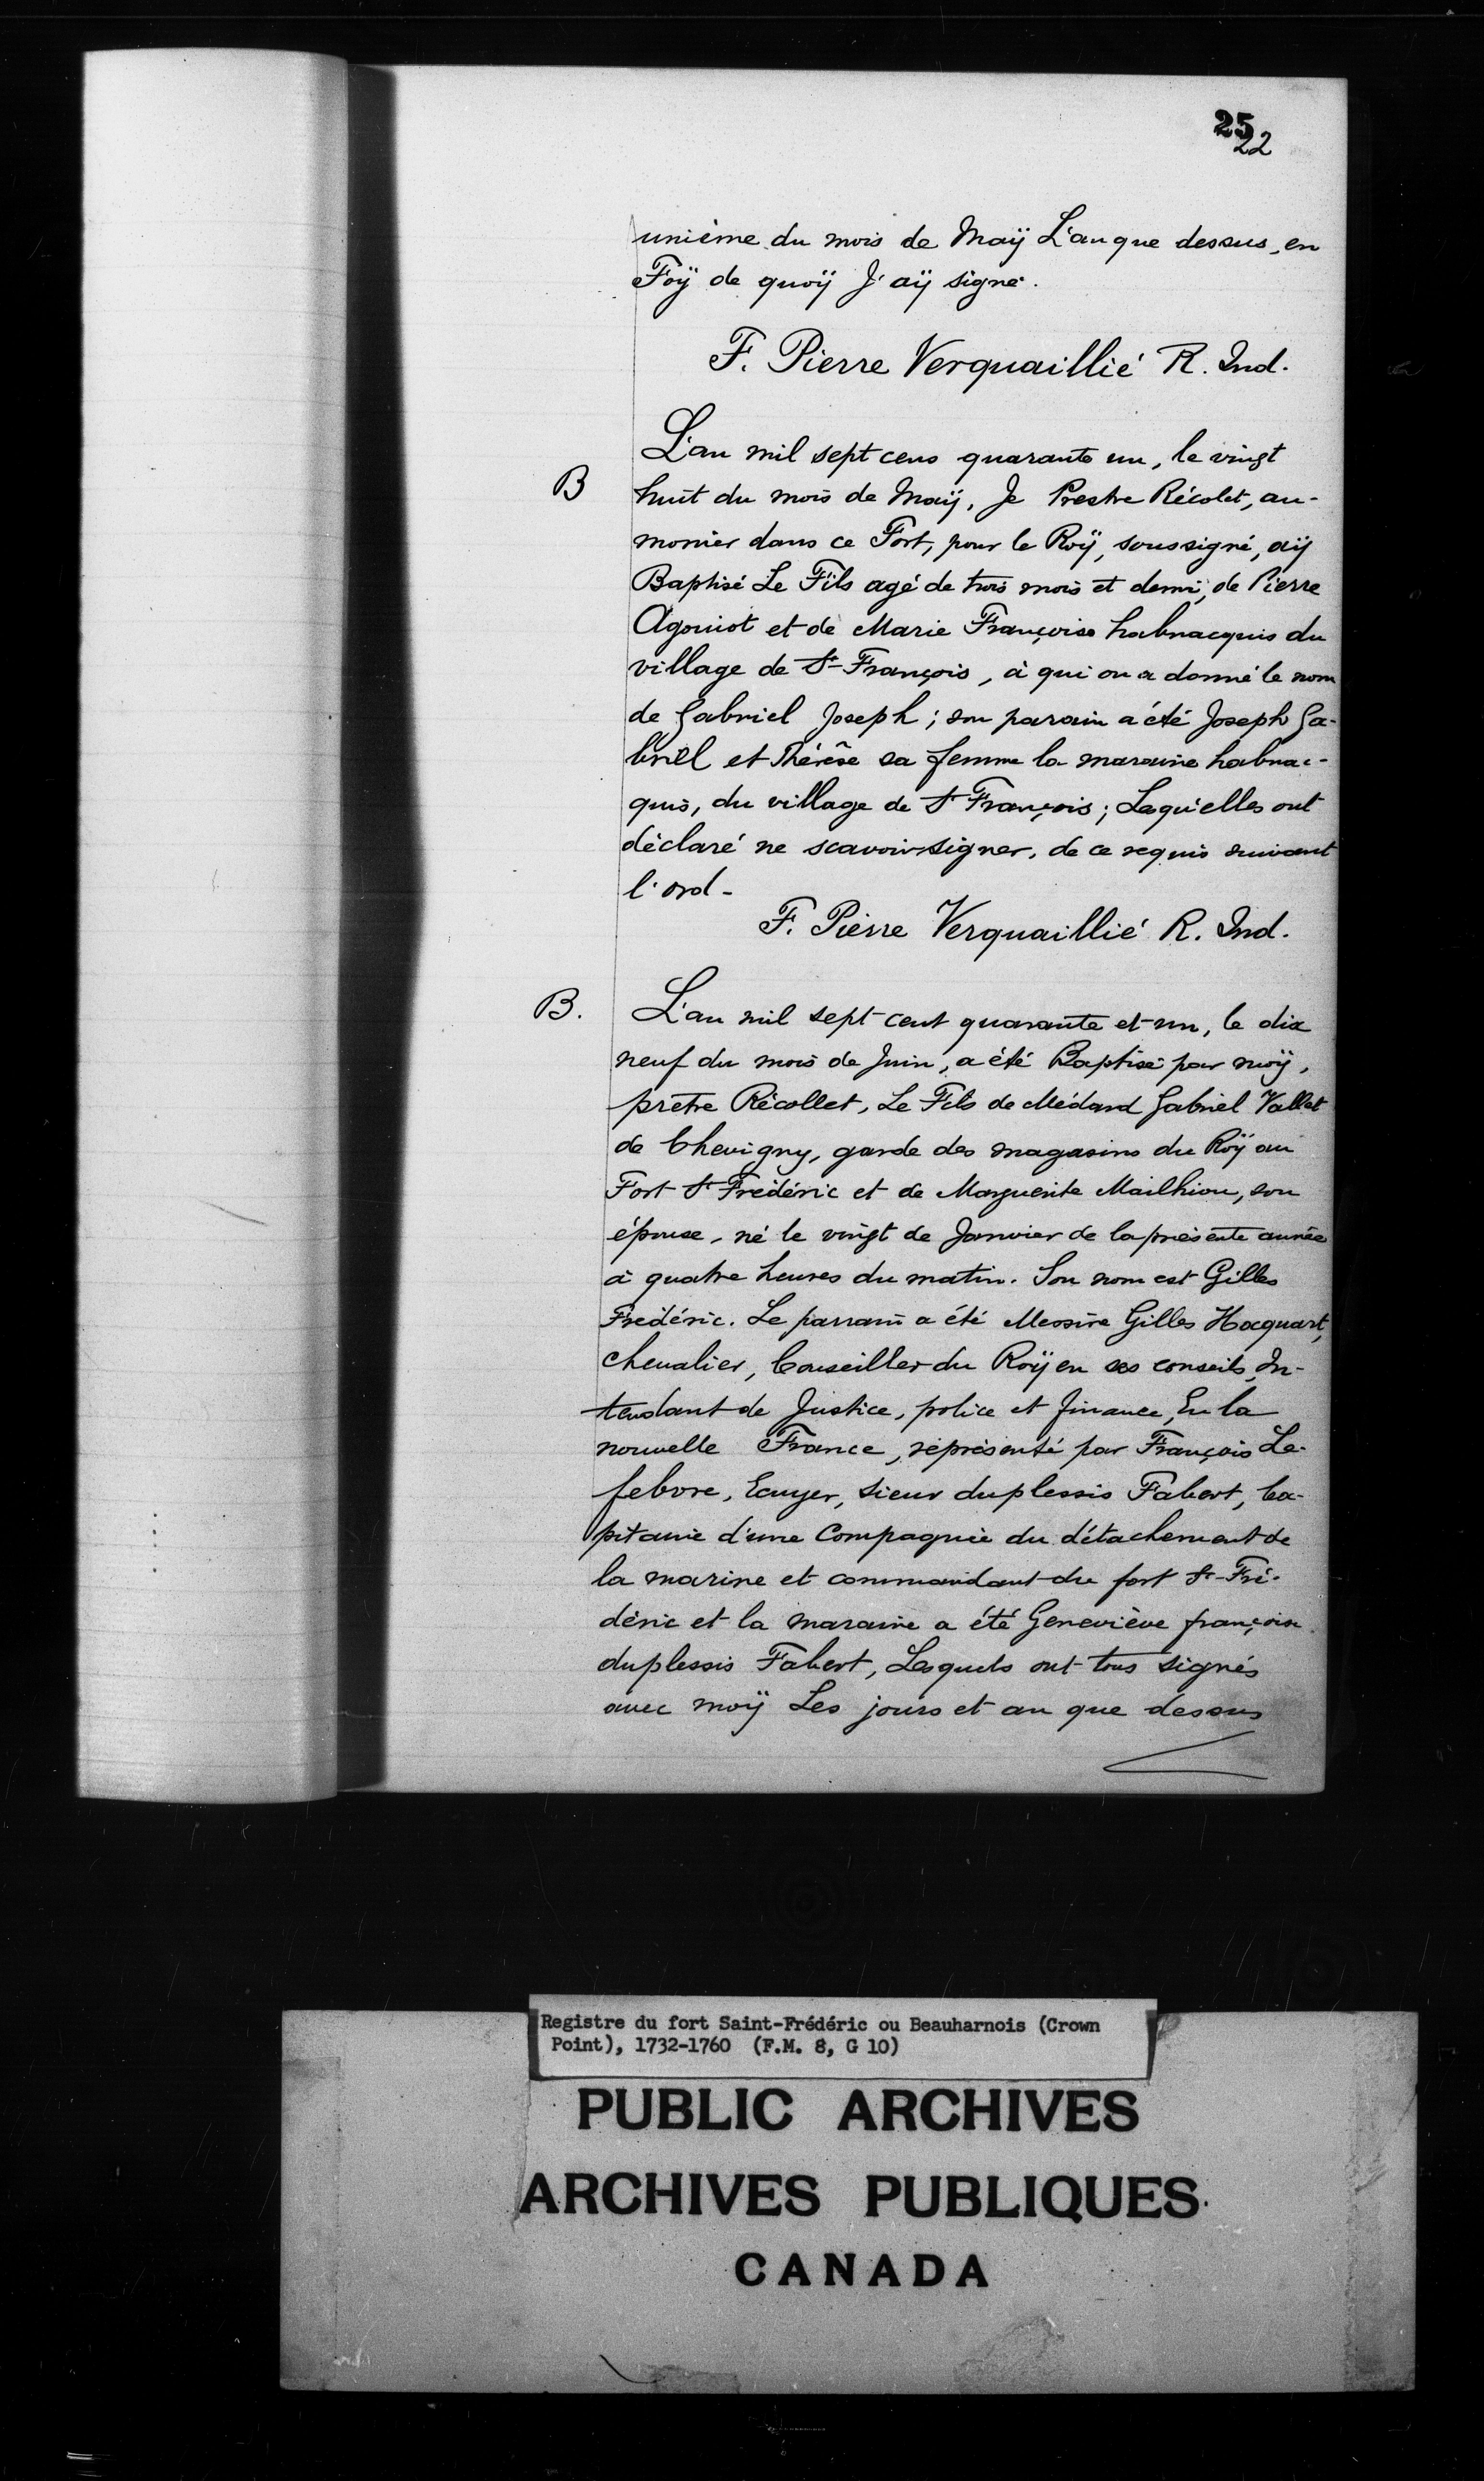 25
22
unième du mois de Maÿ L'an que dessus, en
Foÿ de quoÿ J'aÿ signé.
F. Pierre Verquaillié R. Ind.
L'an mil sept cens quarante un, le vingt
B huit du mois de Maÿ, Je Prestre Récolet, au-
monier dans ce Fort, pour le Roÿ, soussigné, aÿ
Baptisé Le Fils agé de trois mois et demi, de Pierre
Agoniot et de Marie Françoise habnacquis du
village de St-François, à qui on a donné le nom
de Gabriel Joseph; son parain a été Joseph Ga-
briel et Thérèse sa femme la maraine habnac-
quis, du village de St François; Lesqu'elles ont
déclaré ne scavoir signer, de ce requis suivant
l'ord-
F. Pierre Verquaillié R. Ind.
B. L'an mil sept cent quarante et un, le dix
neuf du mois de Juin, a été Baptisé par moÿ,
prètre Récollet, Le Fils de Médard Gabriel Vallet
de Chevigny, garde des magasins du Roÿ au
Fort St Frédéric et de Marguerite Mailhiou, son
épouse, né le vingt de Janvier de la présente année
à quatre heures du matin. Son nom est Gilles
Frédéric. Le parrain a été Messire Gilles Hocquart,
Chevalier, Conseiller du Roÿ en ses conseils, In-
tendant de Justice, police et finance, En la
nouvelle France, représenté par François Le-
febvre, Ecuyer, sieur duplessis Fabert, Ca-
pitaine d'une Compagnie du détachement de
la marine et commandant du fort St-Fré-
déric et la maraine a été Geneviève françoise
duplessis Fabert, Lesquels ont tous signés
avec moÿ Les jours et an que dessus
Registre du fort Saint-Frédéric ou Beauharnois (Crown
Point), 1732-1760 (F.M. 8, G 10)
PUBLIC ARCHIVES
ARCHIVES PUBLIQUES
CANADA